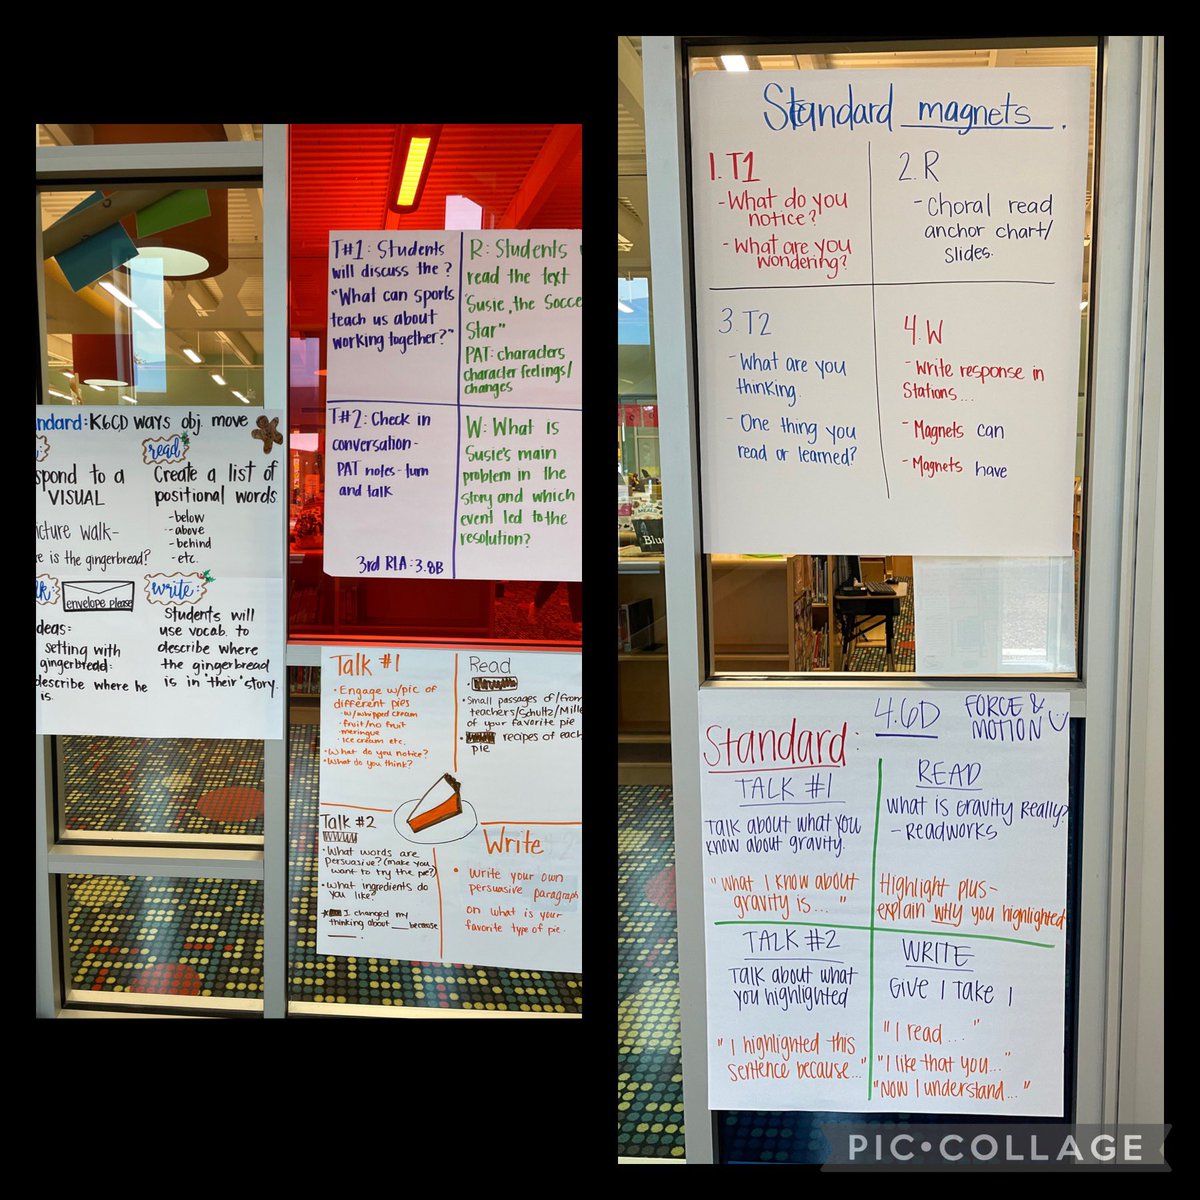 ndard: K6C,D ways obj. move
spond to a
VISUAL
icture walk-
re is the gingerbread?
read
Create a list of
positional words
- below
- above
- behind
- etc.
lk:
envelope please
deas:
setting with
gingerbread:
describe where he
is.
write:
Students will
use vocab. to
describe where
the gingerbread
is in "their" story.
T#1: Students
will discuss the ?
"What can sports
teach us about
working together?"
R: Students
read the text
"Susie, the Socce
Star"
PAT: characters
character feelings/
changes
T#2: Check in
conversation-
PAT notes - turn
and talk
3rd RLA: 3.8B
W: What is
Susie's main
problem in the
story and which
event led to the
resolution?
Talk #1
• Engage w/pic of
different pies
- w/whipped cream
- fruit/no fruit
- meringue
- ice cream etc.
• What do you notice?
• What do you think?
Read
• Small passages of/from
teachers/Schultz/Mille
of your favorite pie
• recipes of each
pie
Talk #2
• What words are
persuasive? (make you
want to try the pie?)
• What ingredients do
you like?
I changed my
thinking about ___ because
____.
Write
• Write your own
persuasive paragraph
on what is your
favorite type of pie.
Standard magnets.
1. T1
- What do you
notice?
- What are you
wondering?
2. R
- Choral read
anchor chart/
slides.
3. T2
- What are you
thinking.
- One thing you
read or learned?
4. W
- Write response in
Stations...
- Magnets can
- Magnets have
Standard: 4.6D FORCE &
MOTION
TALK #1
Talk about what you
know about gravity.
"What I know about
gravity is..."
READ
What is Gravity Really?
- Readworks
Highlight plus-
explain WHY you highlighted
TALK #2
Talk about what
you highlighted
"I highlighted this
sentence because..."
WRITE
Give 1 Take 1
"I read..."
"I like that you..."
"Now I understand..."
PIC•COLLAGE